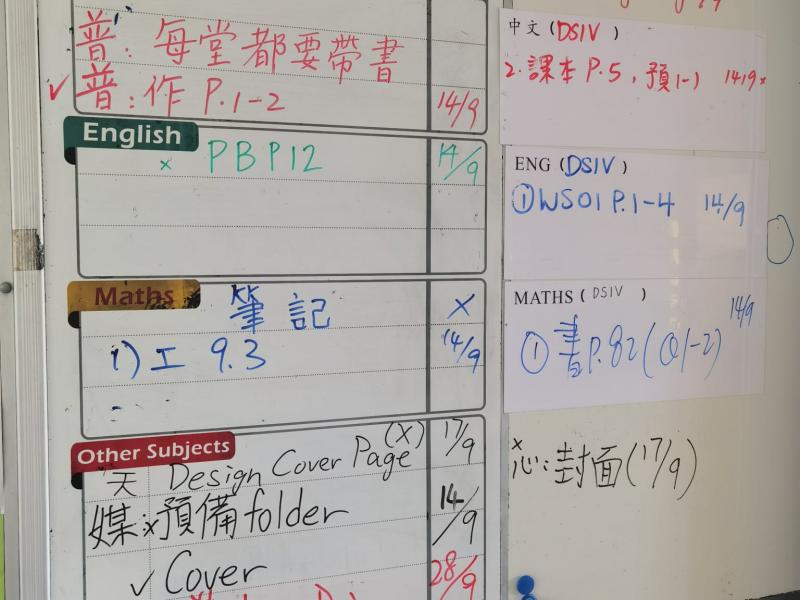 普：每堂都要帶書
✓普：作 P.1-2 14/9
English
× PBP12 14/9
Maths
筆記 ×
1) 工 9.3 14/9
Other Subjects
天 Design Cover Page (×) 17/9
媒：×預備folder 14/9
✓Cover 28/9
中文 (DSIV)
2. 課本 P.5，預1-1 14/9×
ENG (DSIV)
①WS01 P.1-4 14/9
MATHS (DSIV)
14/9
①書P.82(Q1-2)
×
心：封面(17/9)